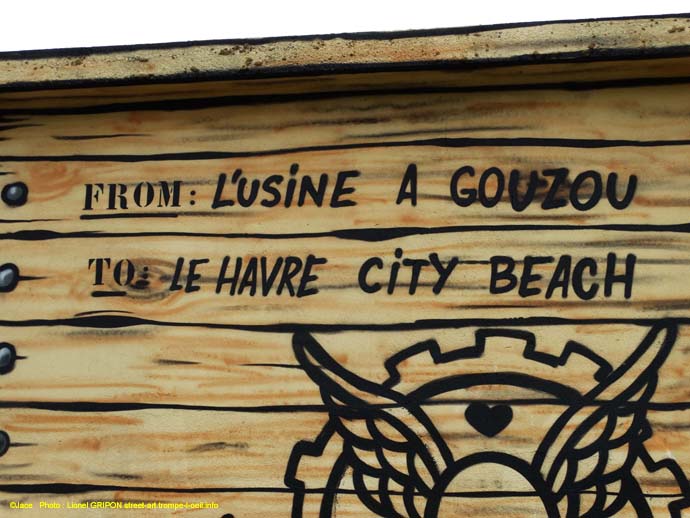 FROM: L'USINE A GOUZOU
TO: LE HAVRE CITY BEACH
©Jace Photo : Lionel GRIPON street-art.trompe-l-oeil.info